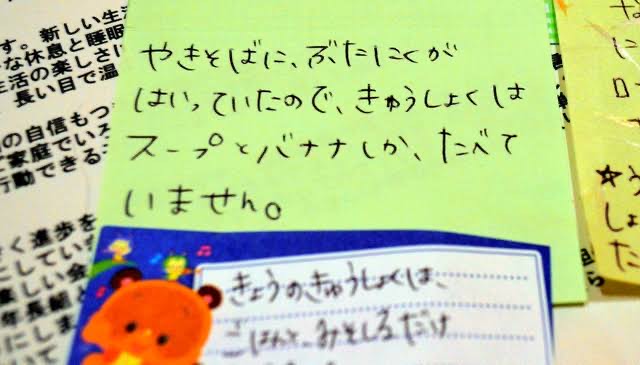 やきそばに、ぶたにくが
はいっていたので、きゅうしょくは
スープとバナナしか、たべて
いません。
きょうのきゅうしょくは、
ごはんと、みそしるだけ
す。新しい生活
な休息と睡眠
生活の楽しさに
長い目で温
の自信もつ
ご家庭でいろ
行動できる
く進歩を
にしていき
楽しい会
年長組と
にしま
いて
な
に
ロ
☆う
しょ
た